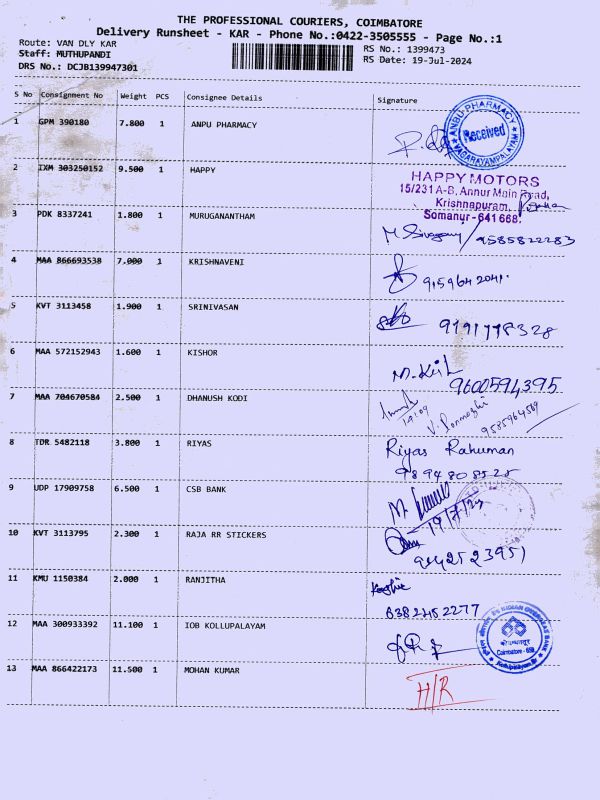 THE PROFESSIONAL COURIERS, COIMBATORE
Delivery Runsheet - KAR - Phone No.:0422-3505555 - Page No.:1
Route: VAN DLY KAR
RS No.: 1399473
Staff: MUTHUPANDI
RS Date: 19-Jul-2024
DRS No.: DCJB139947301
S No Consignment No Weight PCS Consignee Details Signature
1 GPM 390180 7.800 1 ANPU PHARMACY
ANBU PHARMACY
Received
VAGARAYAMPALAYAM
2 IXM 303250152 9.500 1 HAPPY
HAPPY MOTORS
15/231 A-B, Annur Main Road,
Krishnapuram,
Somanur - 641 668.
3 PDK 8337241 1.800 1 MURUGANANTHAM
9585822283
4 MAA 866693538 7.000 1 KRISHNAVENI
9159642041.
5 KVT 3113458 1.900 1 SRINIVASAN
9191778328
6 MAA 572152943 1.600 1 KISHOR
9600594395
7 MAA 704670584 2.500 1 DHANUSH KODI
8 TDR 5482118 3.800 1 RIYAS
Riyas Rahuman
9894808525
9 UDP 17909758 6.500 1 CSB BANK
19/7/24
10 KVT 3113795 2.300 1 RAJA RR STICKERS
9442523951
11 KMU 1150384 2.000 1 RANJITHA
6382452277
12 MAA 300933392 11.100 1 IOB KOLLUPALAYAM
INDIAN OVERSEAS BANK
Coimbatore
13 MAA 866422173 11.500 1 MOHAN KUMAR
H/R